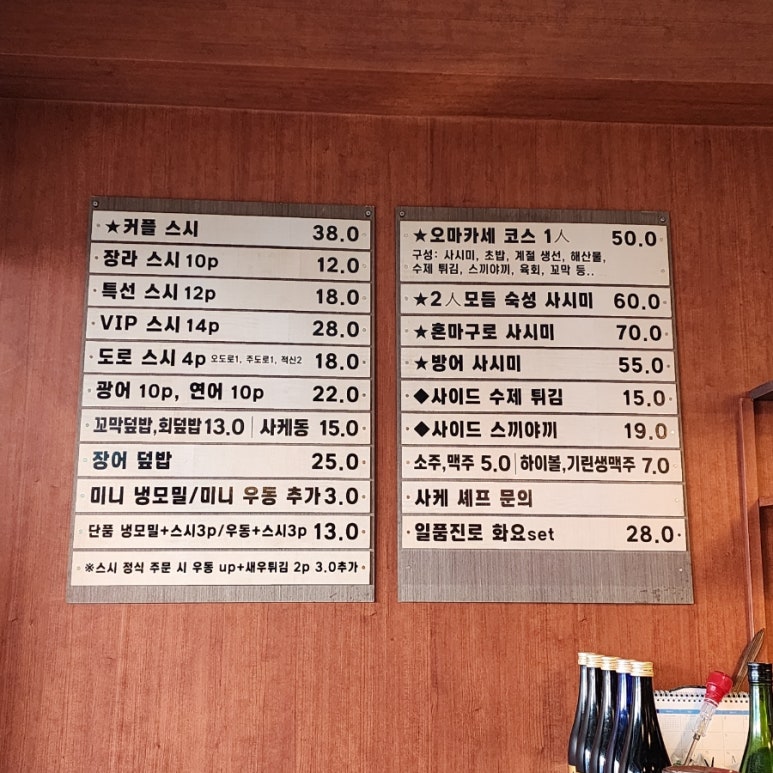 ★커플 스시 38.0
장라 스시 10p 12.0
특선 스시 12p 18.0
VIP 스시 14p 28.0
도로 스시 4p 오도로1, 주도로1, 적신2 18.0
광어 10p, 연어 10p 22.0
꼬막덮밥,회덮밥 13.0 | 사케동 15.0
장어 덮밥 25.0
미니 냉모밀/미니 우동 추가 3.0
단품 냉모밀+스시3p/우동+스시3p 13.0
※스시 정식 주문 시 우동 up+새우튀김 2p 3.0추가
★오마카세 코스 1人 50.0
구성: 사시미, 초밥, 계절 생선, 해산물,
수제 튀김, 스끼야끼, 육회, 꼬막 등..
★2人모듬 숙성 사시미 60.0
★혼마구로 사시미 70.0
★방어 사시미 55.0
◆사이드 수제 튀김 15.0
◆사이드 스끼야끼 19.0
소주,맥주 5.0 | 하이볼,기린생맥주 7.0
사케 셰프 문의
일품진로 화요set 28.0